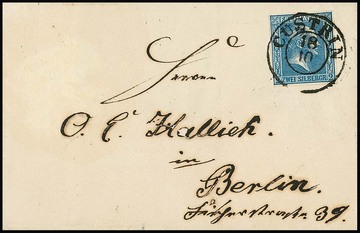 CÜSTRIN
18
10
ZWEI SILBERGR.
Herrn
O. C. Kallich.
in
Berlin.
Fischerstrasse 39.